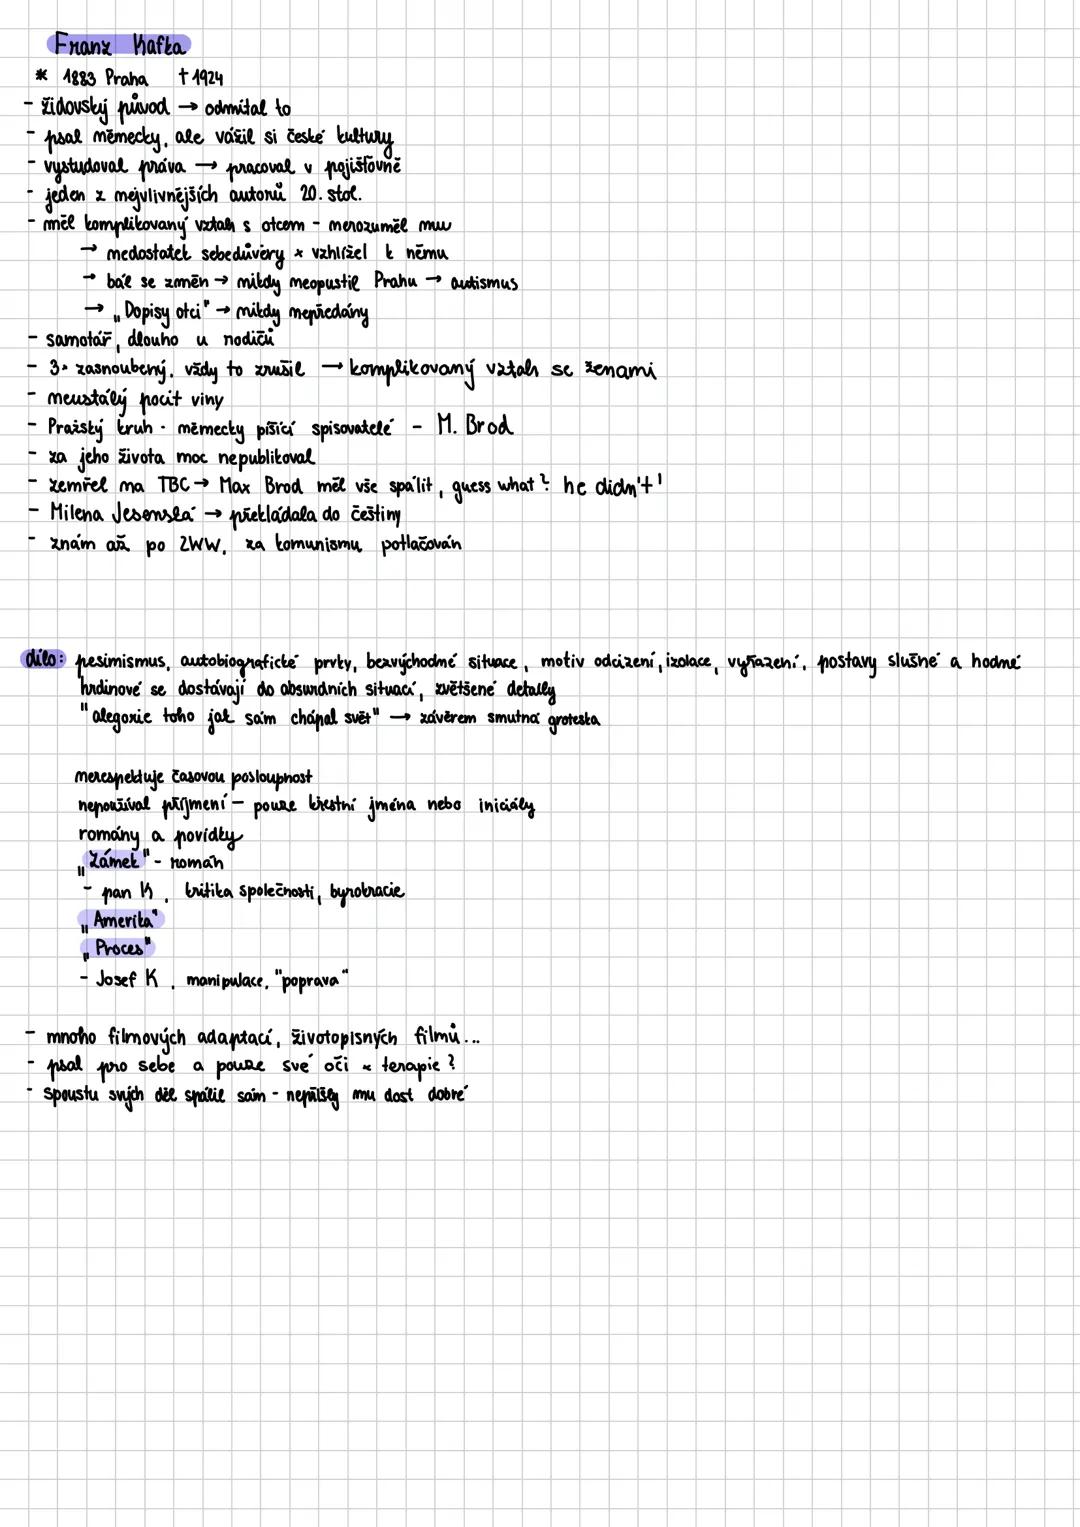 Franz Kafka
* 1883 Praha † 1924
- židovský původ → odmítal to
- psal německy, ale vážil si české kultury
- vystudoval práva → pracoval v pojišťovně
- jeden z nejvlivnějších autorů 20. stol.
- měl komplikovaný vztah s otcem - nerozuměl mu
→ nedostatek sebedůvěry x vzhlížel k němu
→ bál se změn → nikdy neopustil Prahu → autismus
→ „Dopisy otci" → nikdy nepředány
- samotář, dlouho u rodičů
- 3x zasnoubený, vždy to zrušil → komplikovaný vztah se ženami
- neustálý pocit viny
- Pražský kruh - německy píšící spisovatelé - M. Brod
- za jeho života moc nepublikoval
- zemřel na TBC → Max Brod měl vše spálit, guess what? he didn't!
- Milena Jesenská → překládala do češtiny
- znám až po 2WW, za komunismu potlačován
dílo: pesimismus, autobiografické prvky, bezvýchodné situace, motiv odcizení, izolace, vyřazení, postavy slušné a hodné
hrdinové se dostávají do absurdních situací, zvětšené detaily
"alegorie toho jak sám chápal svět" → závěrem smutná groteska
nerespektuje časovou posloupnost
nepoužíval příjmení - pouze křestní jména nebo iniciály
romány a povídky
„Zámek" - román
- pan K, kritika společnosti, byrokracie
„Amerika"
„Proces"
- Josef K, manipulace, "poprava"
- mnoho filmových adaptací, životopisných filmů...
- psal pro sebe a pouze své oči ~ terapie?
- spoustu svých děl spálil sám - nepřišly mu dost dobré